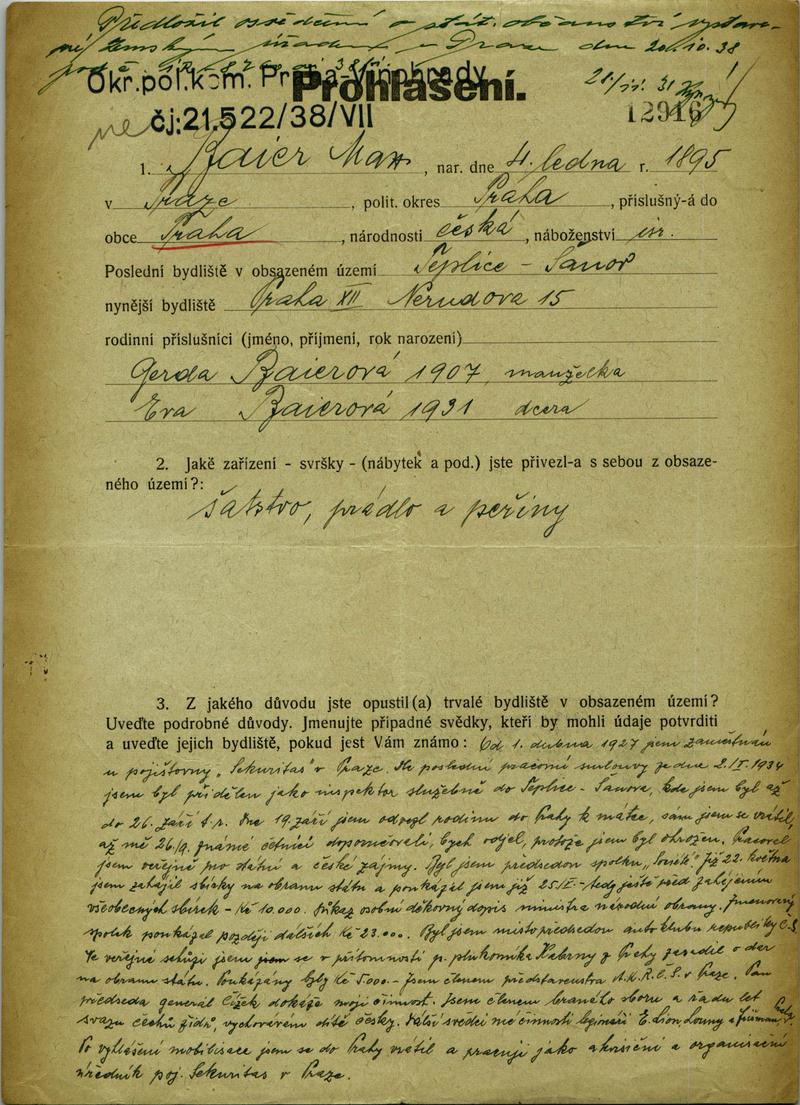 Předložil osvědčení o stát. občanství vystave-
né zemským úřadem v Praze dne 20.10.38
Okr.pol.kom. Praha-Vinohrady
Prohlášení.
čj:21.522/38/VII
12916
ne
1. Baier Max, nar. dne 4. ledna r. 1895
v Praze, polit. okres Praha, příslušný-á do
obce Praha, národnosti česká, náboženství isr.
Poslední bydliště v obsazeném území Teplice - Šanov
nynější bydliště Praha XII Nerudova 15
rodinní příslušníci (jméno, příjmení, rok narození)
Gerda Baierová 1907, manželka
Eva Baierová 1931 dcera
2. Jaké zařízení - svršky - (nábytek a pod.) jste přivezl-a s sebou z obsaze-
ného území?:
šatstvo, prádlo a peřiny
3. Z jakého důvodu jste opustil(a) trvalé bydliště v obsazeném území?
Uveďte podrobné důvody. Jmenujte případné svědky, kteří by mohli údaje potvrditi
a uveďte jejich bydliště, pokud jest Vám známo: Od 1. dubna 1927 jsem zaměstnán
u pojišťovny "Sekuritas" v Praze. Dle poslední pracovní smlouvy ze dne 2.II.1934
jsem byl přidělen jako inspektor služebně do Teplic - Šanova, kde jsem byl až
do 26. září t.r. Dne 19. září jsem odvezl rodinu do Prahy k matce, sám jsem se vrátil,
až mě 26./9. známé četníci doporučovali, bych odjel, protože jsem byl ohrožen. Pracoval
jsem veřejně pro státní a české zájmy. Byl jsem předsedou spolku již 22. května
jsem zahájil sbírky na obranu státu a poukázal jsem již - tedy ještě před zahájením
všeobecných sbírek - Kč 10.000. Důkaz osobní děkovný dopis ministra národní obrany. Jmenovaný
spolek poukázal později dalších Kč 23.000. Byl jsem místopředsedou autoklubu republiky Č.S.
Ve veřejné schůzi jsem se v přítomnosti p. plukovníka z Prahy zasadil o dar
na obranu státu. Poukázány byly Kč 5.000.- Jsem členem představenstva A.K.R.Č.S. v Praze. Pan
předseda generál Čížek dokáže moji činnost. Jsem členem branného sboru a řadu let
svazu čechů židů, vychovávám dítě česky. Další svědci mé činnosti legionáři E. Lion, Louny a
Po vyhlášení mobilisace jsem se do Prahy vrátil a pracuji jako akvisiční a organisační
úředník poj. Sekuritas v Praze.